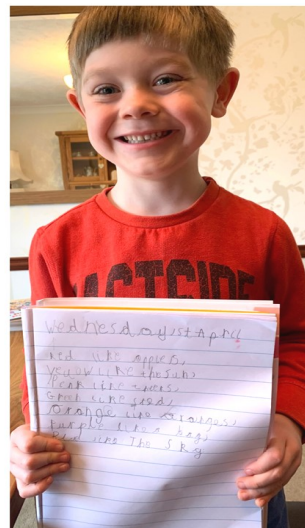 Wednesday 1st April
Red like apples,
Yellow like the sun,
Pink like
Green like
Orange like oranges,
Purple like a bag,
Blue like The Sky